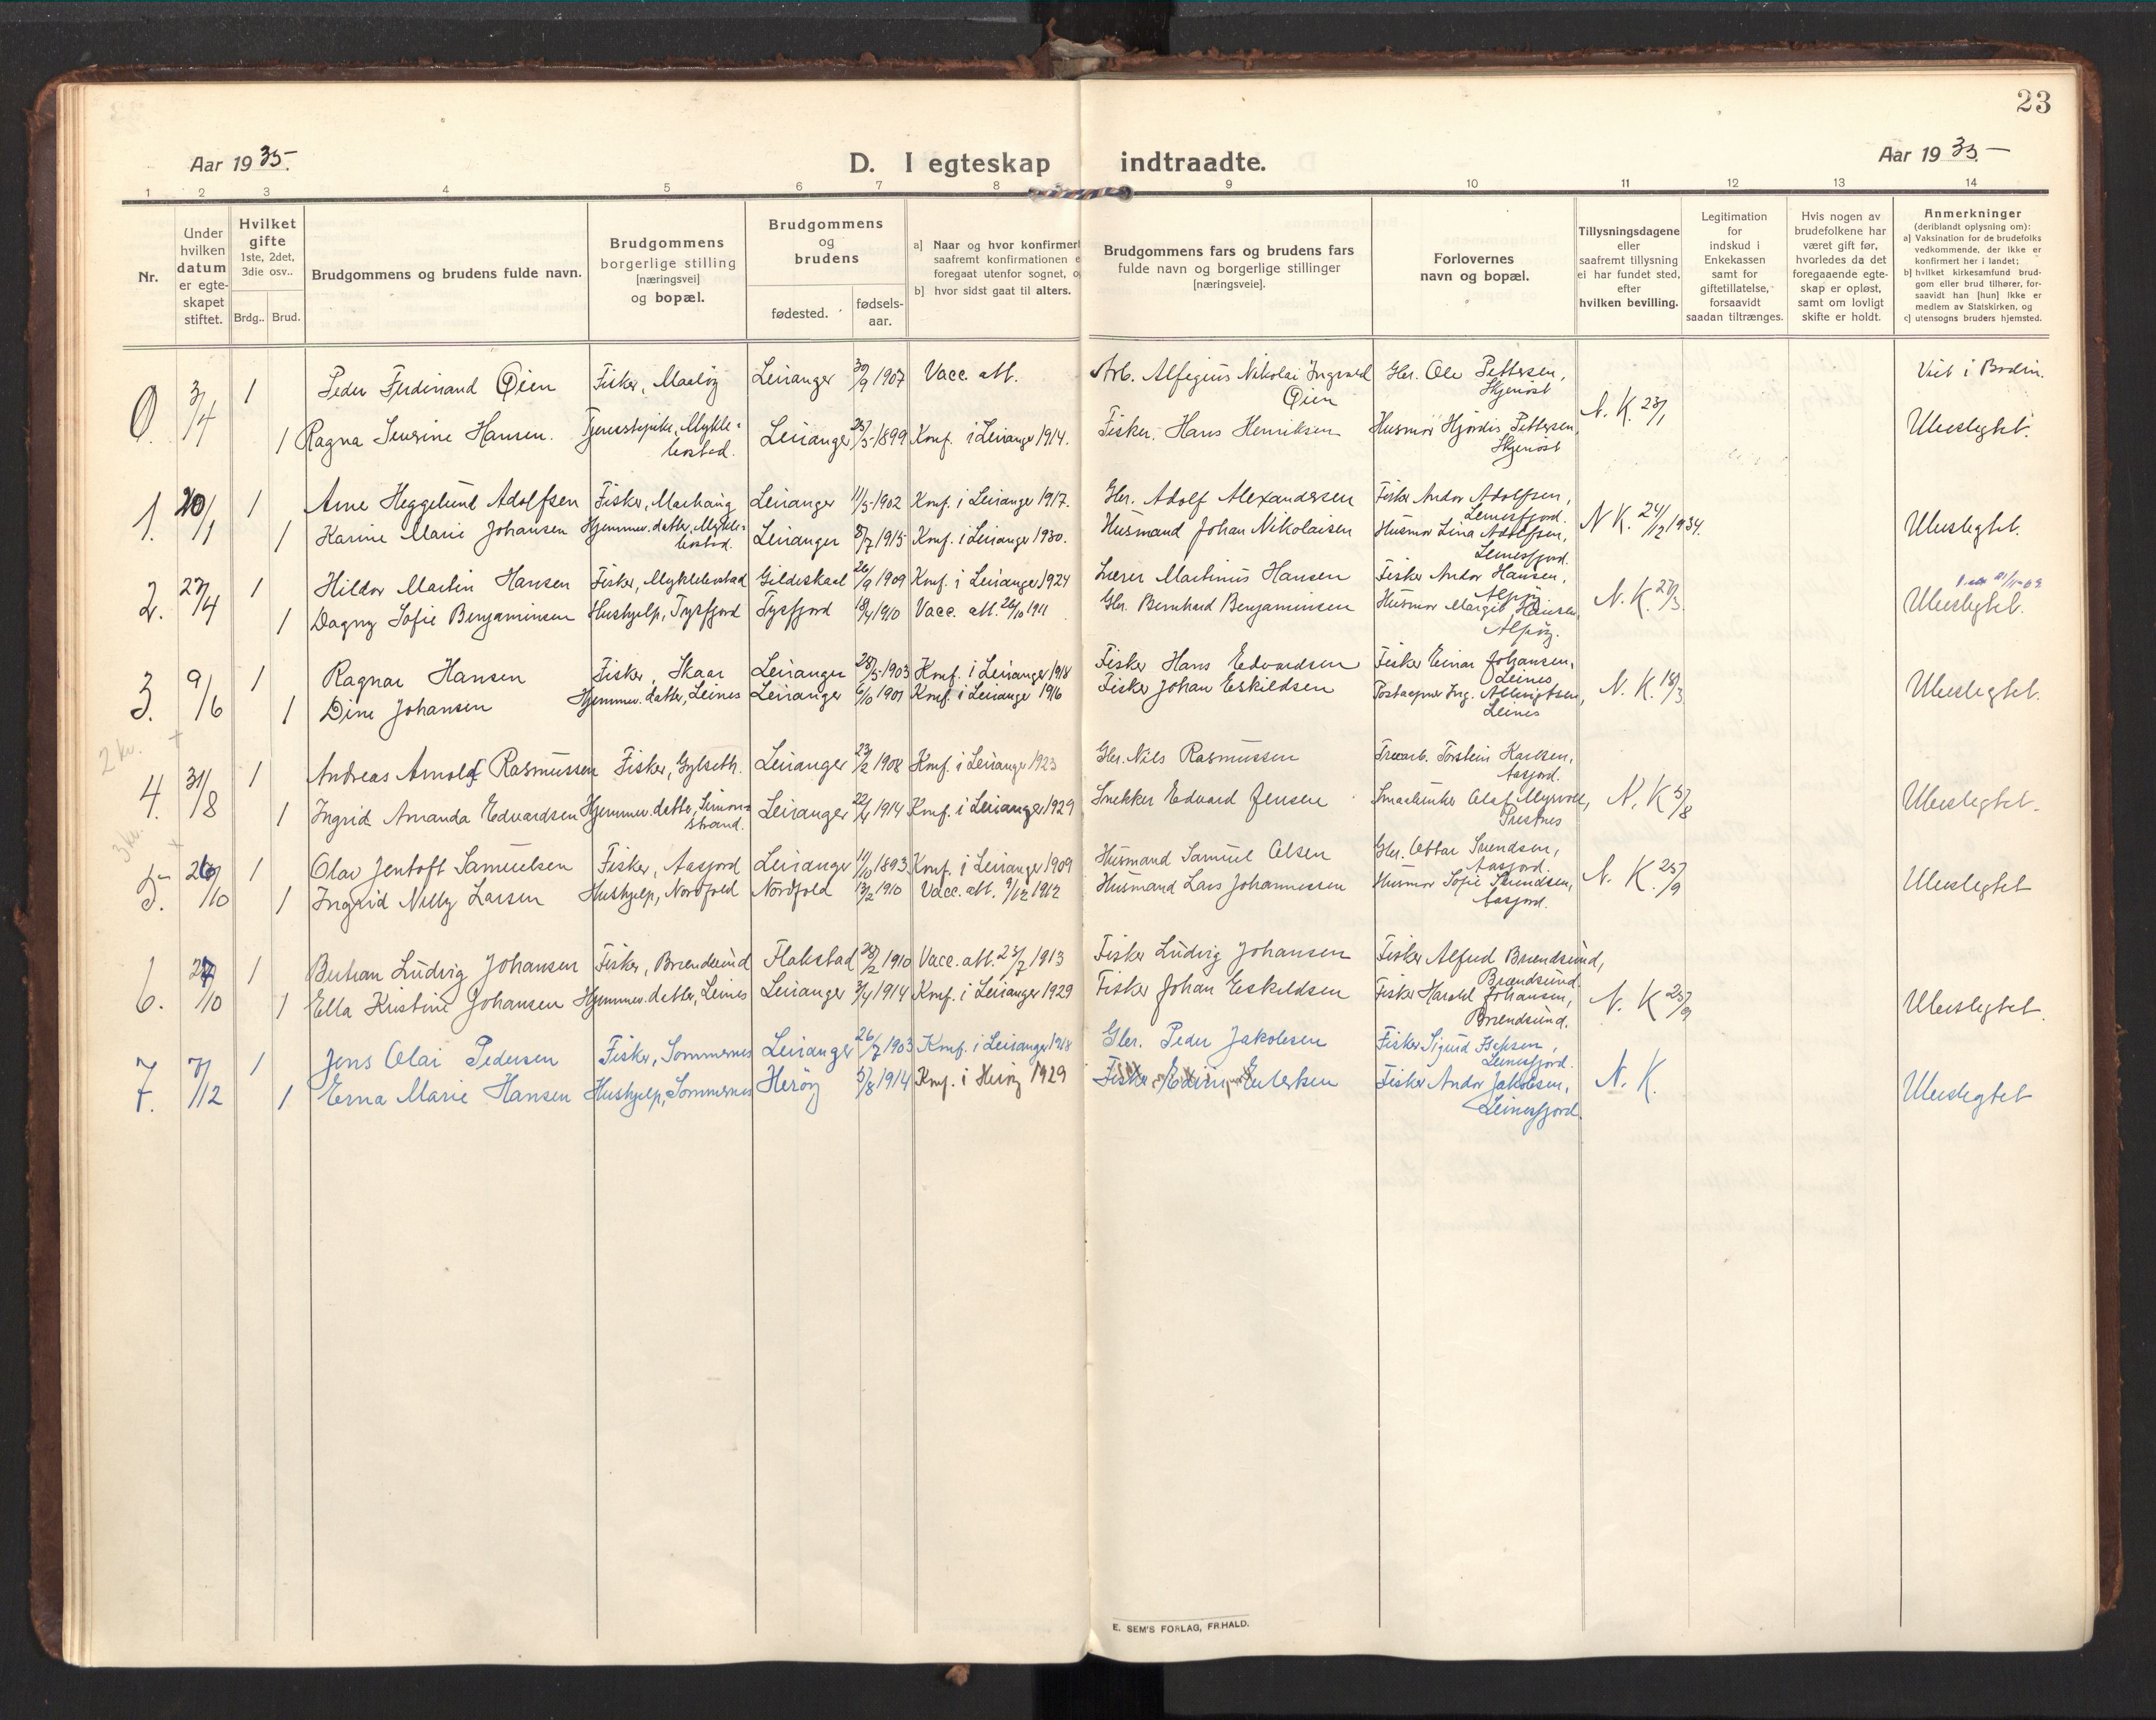 23
Aar 1935.
D. I egteskap indtraadte.
Aar 1935.
1 2 3 4 5 6 7 8 9 10 11 12 13 14
Nr.
Under hvilken datum er egte-skapet stiftet.
Hvilket gifte 1ste, 2det, 3die osv..
Brdg.. Brud.
Brudgommens og brudens fulde navn.
Brudgommens borgerlige stilling [næringsvei] og bopæl.
Brudgommens og brudens
fødested. fødsels-aar.
a] Naar og hvor konfirmert saafremt konfirmationen e foregaat utenfor sognet, o
b] hvor sidst gaat til alters.
Brudgommens fars og brudens fars fulde navn og borgerlige stillinger [næringsveie].
Forlovernes navn og bopæl.
Tillysningsdagene eller saafremt tillysning ei har fundet sted, efter hvilken bevilling.
Legitimation for indskud i Enkekassen samt for giftetillatelse, forsaavidt saadan tiltrænges.
Hvis nogen av brudefolkene har været gift før, hvorledes da det foregaaende egte-skap er opløst, samt om lovligt skifte er holdt.
Anmerkninger (deriblandt oplysning om):
a] Vaksination for de brudefolks vedkommende, der ikke er konfirmert her i landet;
b] hvilket kirkesamfund brud-gom eller brud tilhører, for-saavidt han [hun] ikke er medlem av Statskirken, og
c] utensogns bruders hjemsted.
0. 3/4 1 Peder Ferdinand Øien Fisker, Maaløy Leiranger 30/9 1907 Vacc. att. Arb. Alfegius Nikolai Ingvard Øien Gbr. Ole Pettersen, Skjenøst N. K. 23/1 Viet i Bodin.
1 Ragna Severine Hansen. Tjenestepike, Mykle-bostad. Leiranger 25/5 1899 Konf. i Leiranger 1914. Fisker, Hans Henriksen Husmor Hjørdis Pettersen, Skjenøst Ubeslegtet.
1. 20/1 1 Arne Heggelund Adolfsen Fisker, Maehaug Leiranger 11/5 1902 Konf. i Leiranger 1917. Gbr. Adolf Alexandersen Fisker Andor Adolfsen, Leinesfjord. N K. 24/12 1934.
1 Karine Marie Johansen Hjemmev. datter, Mykle-bostad. Leiranger 8/7 1915 Konf. i Leiranger 1930. Husmand Johan Nikolaisen Husmor Lina Adolfsen, Leinesfjord. Ubeslegtet.
2. 27/4 1 Hildor Martin Hansen Fisker, Myklebostad Gildeskaal 26/9 1909 Konf. i Leiranger 1924 Lærer Martinus Hansen Fisker Andor Hansen, Alpøy N. K. 27/3
1 Dagny Sofie Benjaminsen Hushjelp, Tysfjord Tysfjord 18/4 1910 Vacc. att. 26/10 1911 Gbr. Bernhard Benjaminsen Husmor Margit Hansen, Alpøy. Ubeslegtet.
3. 9/6 1 Ragnar Hansen Fisker, Skaar Leiranger 28/5 1903 Konf. i Leiranger 1918 Fisker Hans Edvardsen Fisker Einar Johansen, Leines N. K. 18/3
1 Dine Johansen Hjemmev. datter, Leines Leiranger 6/10 1901 Konf. i Leiranger 1916 Fisker Johan Eskildsen Postaapner Ing. Albrigtsen, Leines Ubeslegtet.
2 kv.
4. 31/8 1 Andreas Arnolf Rasmussen Fisker, Gylseth. Leiranger 23/2 1908 Konf. i Leiranger 1923 Gbr. Nils Rasmussen Torstein Karlsen, Aasjord. N. K 5/8
1 Ingrid Amanda Edvardsen Hjemmev. datter, Simon-strand. Leiranger 22/4 1914 Konf. i Leiranger 1929 Snekker Edvard Jensen Smaabruker Olaf Myrvoll, Prestnes Ubeslegtet.
3 kv.
5. 26/10 1 Olav Jentoft Samuelsen Fisker, Aasjord Leiranger 11/10 1893 Konf. i Leiranger 1909 Husmand Samuel Olsen Gbr. Ottar Svendsen, Aasjord. N. K. 25/9
1 Ingrid Nelly Larsen Hushjelp, Nordfold Nordfold 13/2 1910 Vacc. att. 9/12 1912 Husmand Lars Johannessen Husmor Sofie Svendsen, Aasjord. Ubeslegtet
6. 27/10 1 Bertran Ludvig Johansen Fisker, Brændsund Flakstad 28/2 1910 Vacc. att. 23/7 1913 Fisker Ludvig Johansen Fisker Alfred Brændsund, Brændsund. N. K 25/9
1 Ella Kristine Johansen Hjemmev. datter, Leines Leiranger 3/4 1914 Konf. i Leiranger 1929 Fisker Johan Eskildsen Fisker Harald Johansen, Brændsund. Ubeslegtet.
7. 7/12 1 Jens Olai Pedersen Fisker, Sommernes Leiranger 26/7 1903 Konf. i Leiranger 1918 Gbr. Peder Jakobsen Fisker Sigurd Leinesfjord. N. K.
1 Erna Marie Hansen Hushjelp, Sommernes Herøy 5/8 1914 Konf. i Herøy 1929 Fisker Edvin Fisker Andor Jakobsen, Leinesfjord. Ubeslegtet
E. SEM'S FORLAG, FR.HALD.